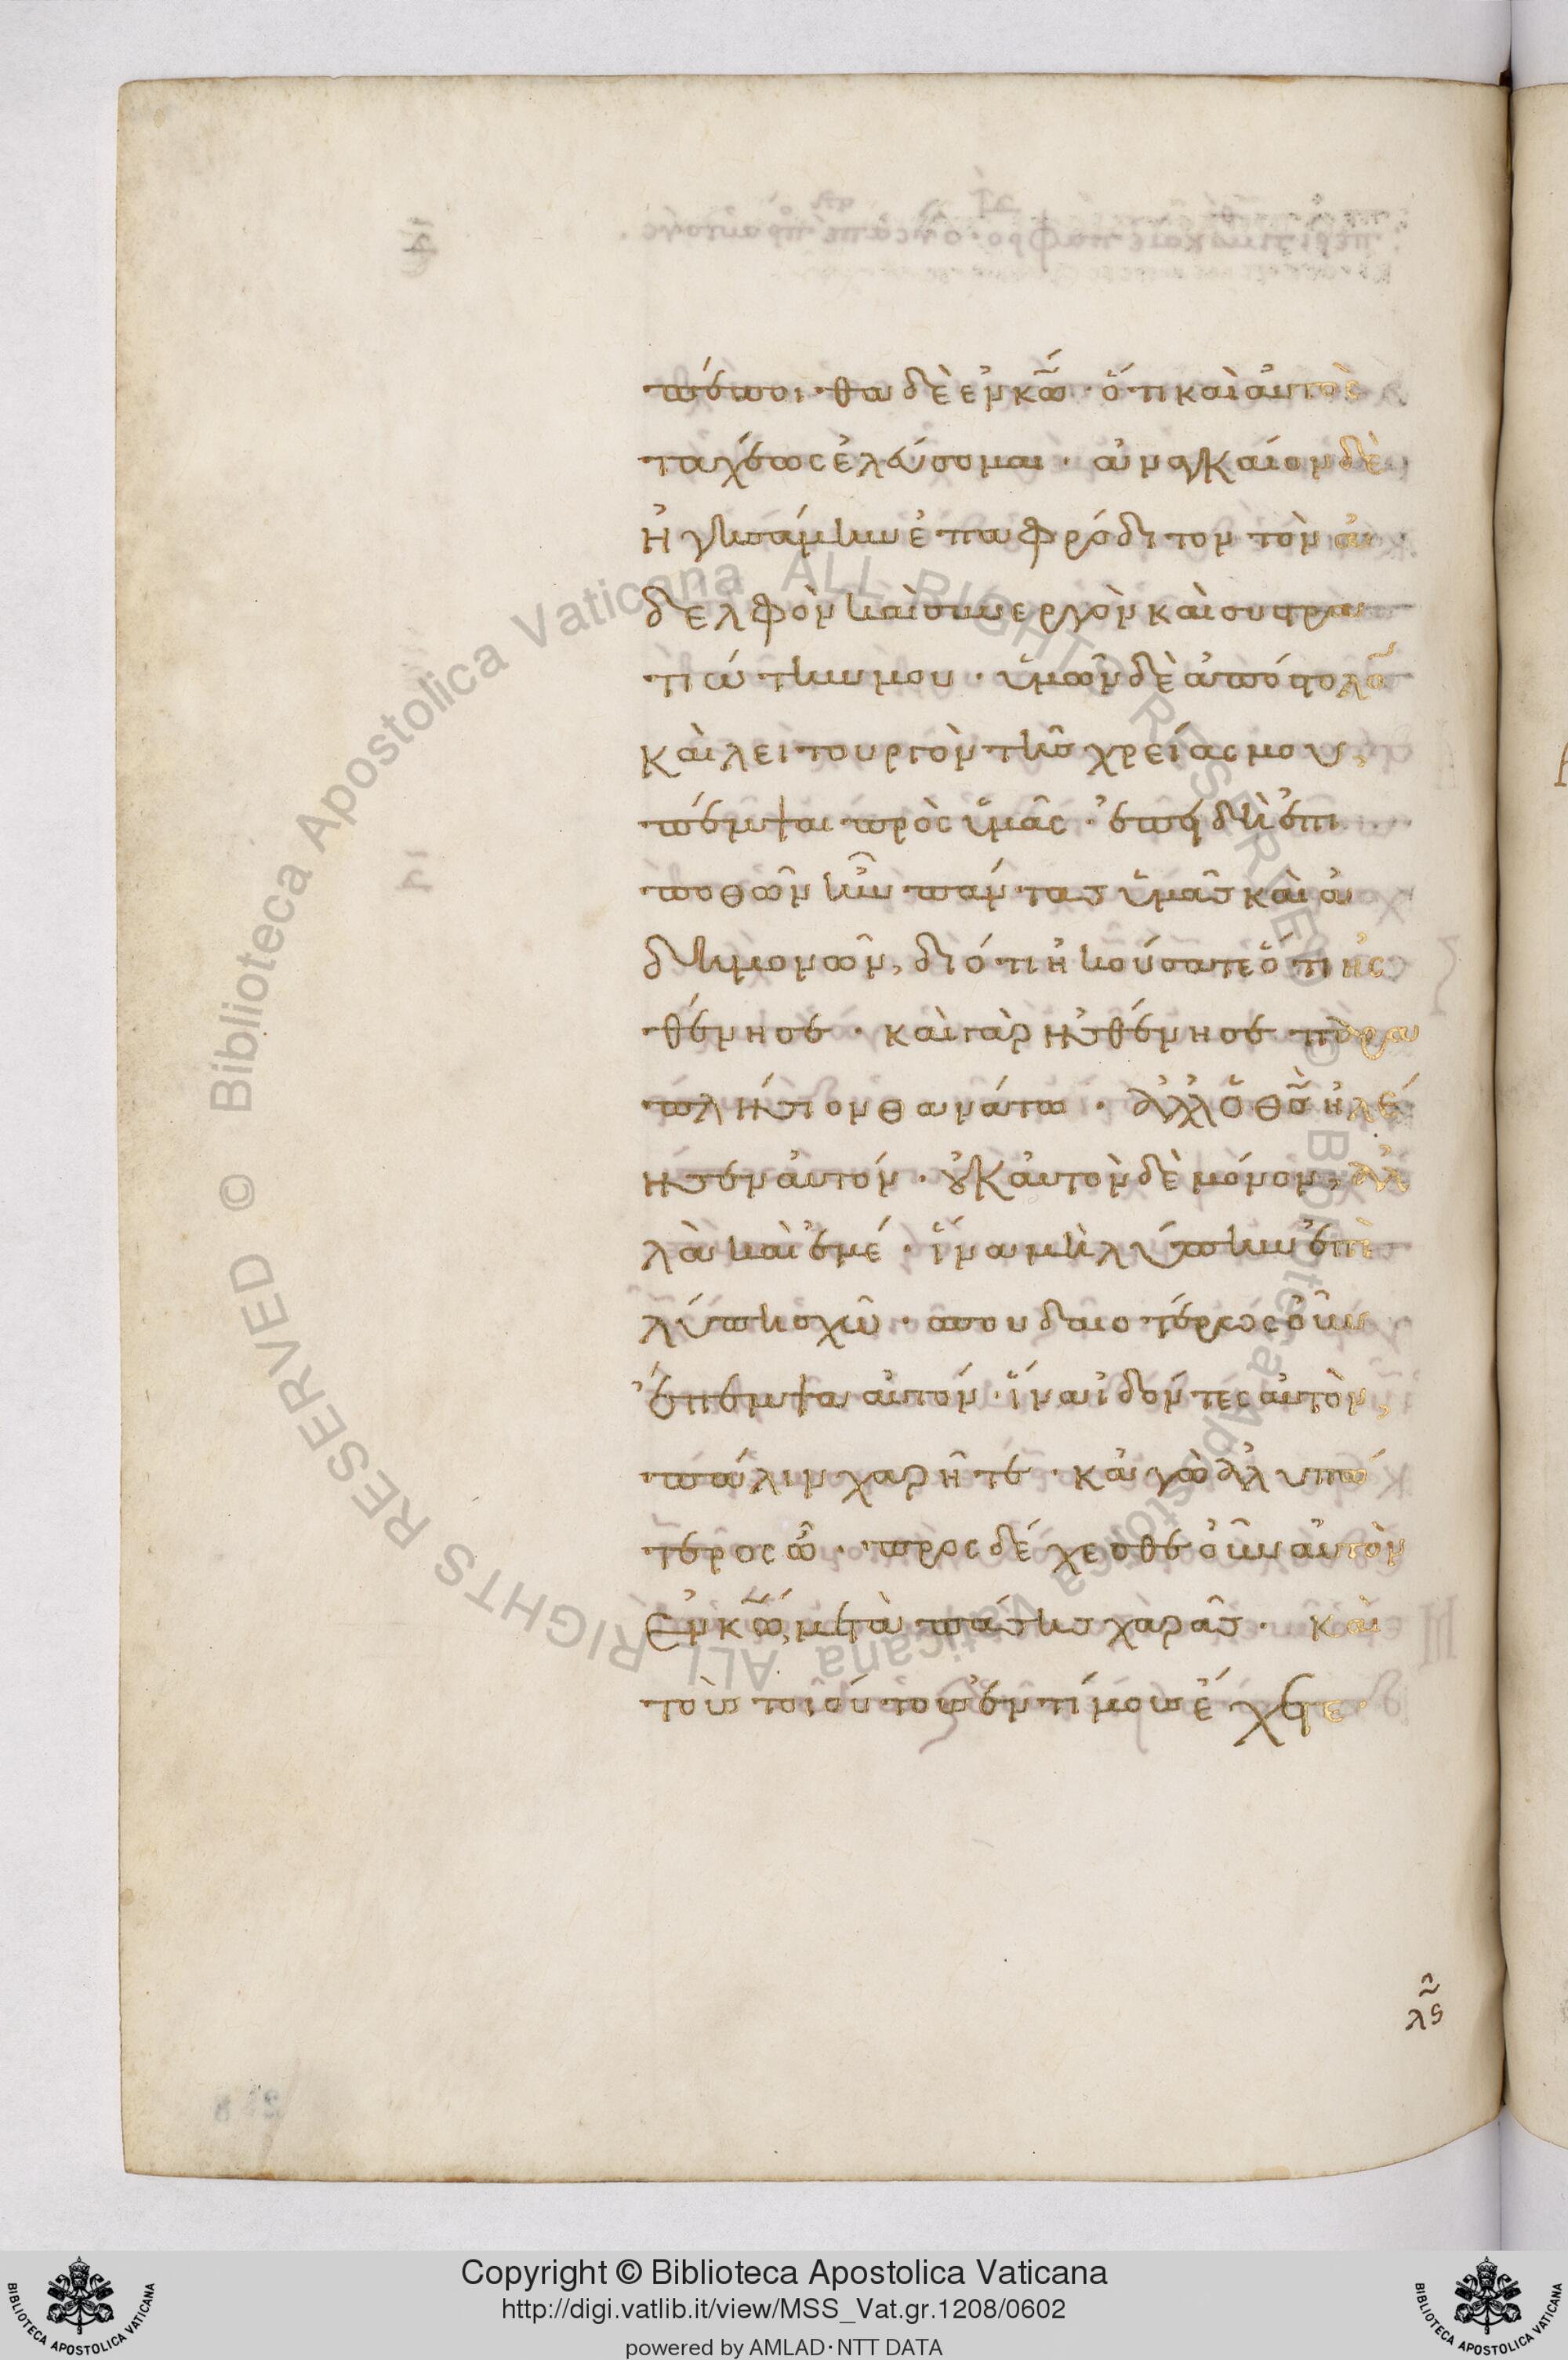 πέποιθα δὲ ἐν κω̅ · ὅτι καὶ αὐτὸς
ταχέως ἐλεύσομαι · ἀναγκαῖον δὲ
ἡγησάμην ἐπαφρόδιτον τὸν ἀ
δελφὸν καὶ συνεργὸν καὶ συστρα
τιώτην μου · ὑμῶν δὲ ἀπόστολον
καὶ λειτουργὸν τῆς χρείας μου,
πέμψαι πρὸς ὑμᾶς · ἐπειδὴ ἐπι
ποθῶν ἦν πάντας ὑμᾶς καὶ ἀ
δημονῶν, διότι ἠκούσατε ὅτι ἠσ
θένησε · καὶ γὰρ ἠσθένησε παρα
πλήσιον θανάτω · ἀλλ' ὁ θς̅ ἠλέ
ησεν αὐτόν · οὐκ αὐτὸν δὲ μόνον, ἀλ
λὰ καὶ ἐμέ · ἵνα μὴ λύπην ἐπὶ
λύπη σχῶ · σπουδαιοτέρως οὖν
ἔπεμψα αὐτόν · ἵνα ἰδόντες αὐτὸν,
πάλιν χαρῆτε · κἀγὼ ἀλυπό
τερος ὦ · προσδέχεσθε οὖν αὐτὸν
ἐν κω̅, μετὰ πάσης χαρᾶς · καὶ
τοὺς τοιούτους ἐντίμους ἔχετε ·
λς
Copyright © Biblioteca Apostolica Vaticana
http://digi.vatlib.it/view/MSS_Vat.gr.1208/0602
powered by AMLAD·NTT DATA
BIBLIOTECA APOSTOLICA VATICANA
BIBLIOTECA APOSTOLICA VATICANA
© Biblioteca Apostolica Vaticana ALL RIGHTS RESERVED
© Biblioteca Apostolica Vaticana ALL RIGHTS RESERVED